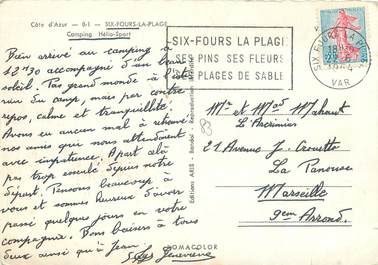 Côte d'Azur - 8-1 - SIX-FOURS-LA-PLAGE
Camping Hélio-Sport
Bien arrivé au camping à
12h30 accompagné d'un beau
soleil. Pas grand monde à l'inté
rieur du camp, mais par contre
repos, calme et tranquillité.
Avons eu aucun mal à retrouver
nos amis qui nous attendaient
avec impatience. A part cela
pas trop esseulé depuis notre
départ. Pensons beaucoup à
vous et sommes heureux d'avoir
passé quelques jours en votre
compagnie. Bons baisers à tous
deux ainsi qu'à Jean.
Geneviève
SIX-FOURS LA PLAGE
SES PINS SES FLEURS
SES PLAGES DE SABLE
SIX FOURS LA PLAGE
VAR
Editions ARIS - Bandol - Reproduction interdite
Mr et Mad Mahaut
21 Avenue J. Crouette
La Panouse
Marseille
9em Arrond.
ROMACOLOR